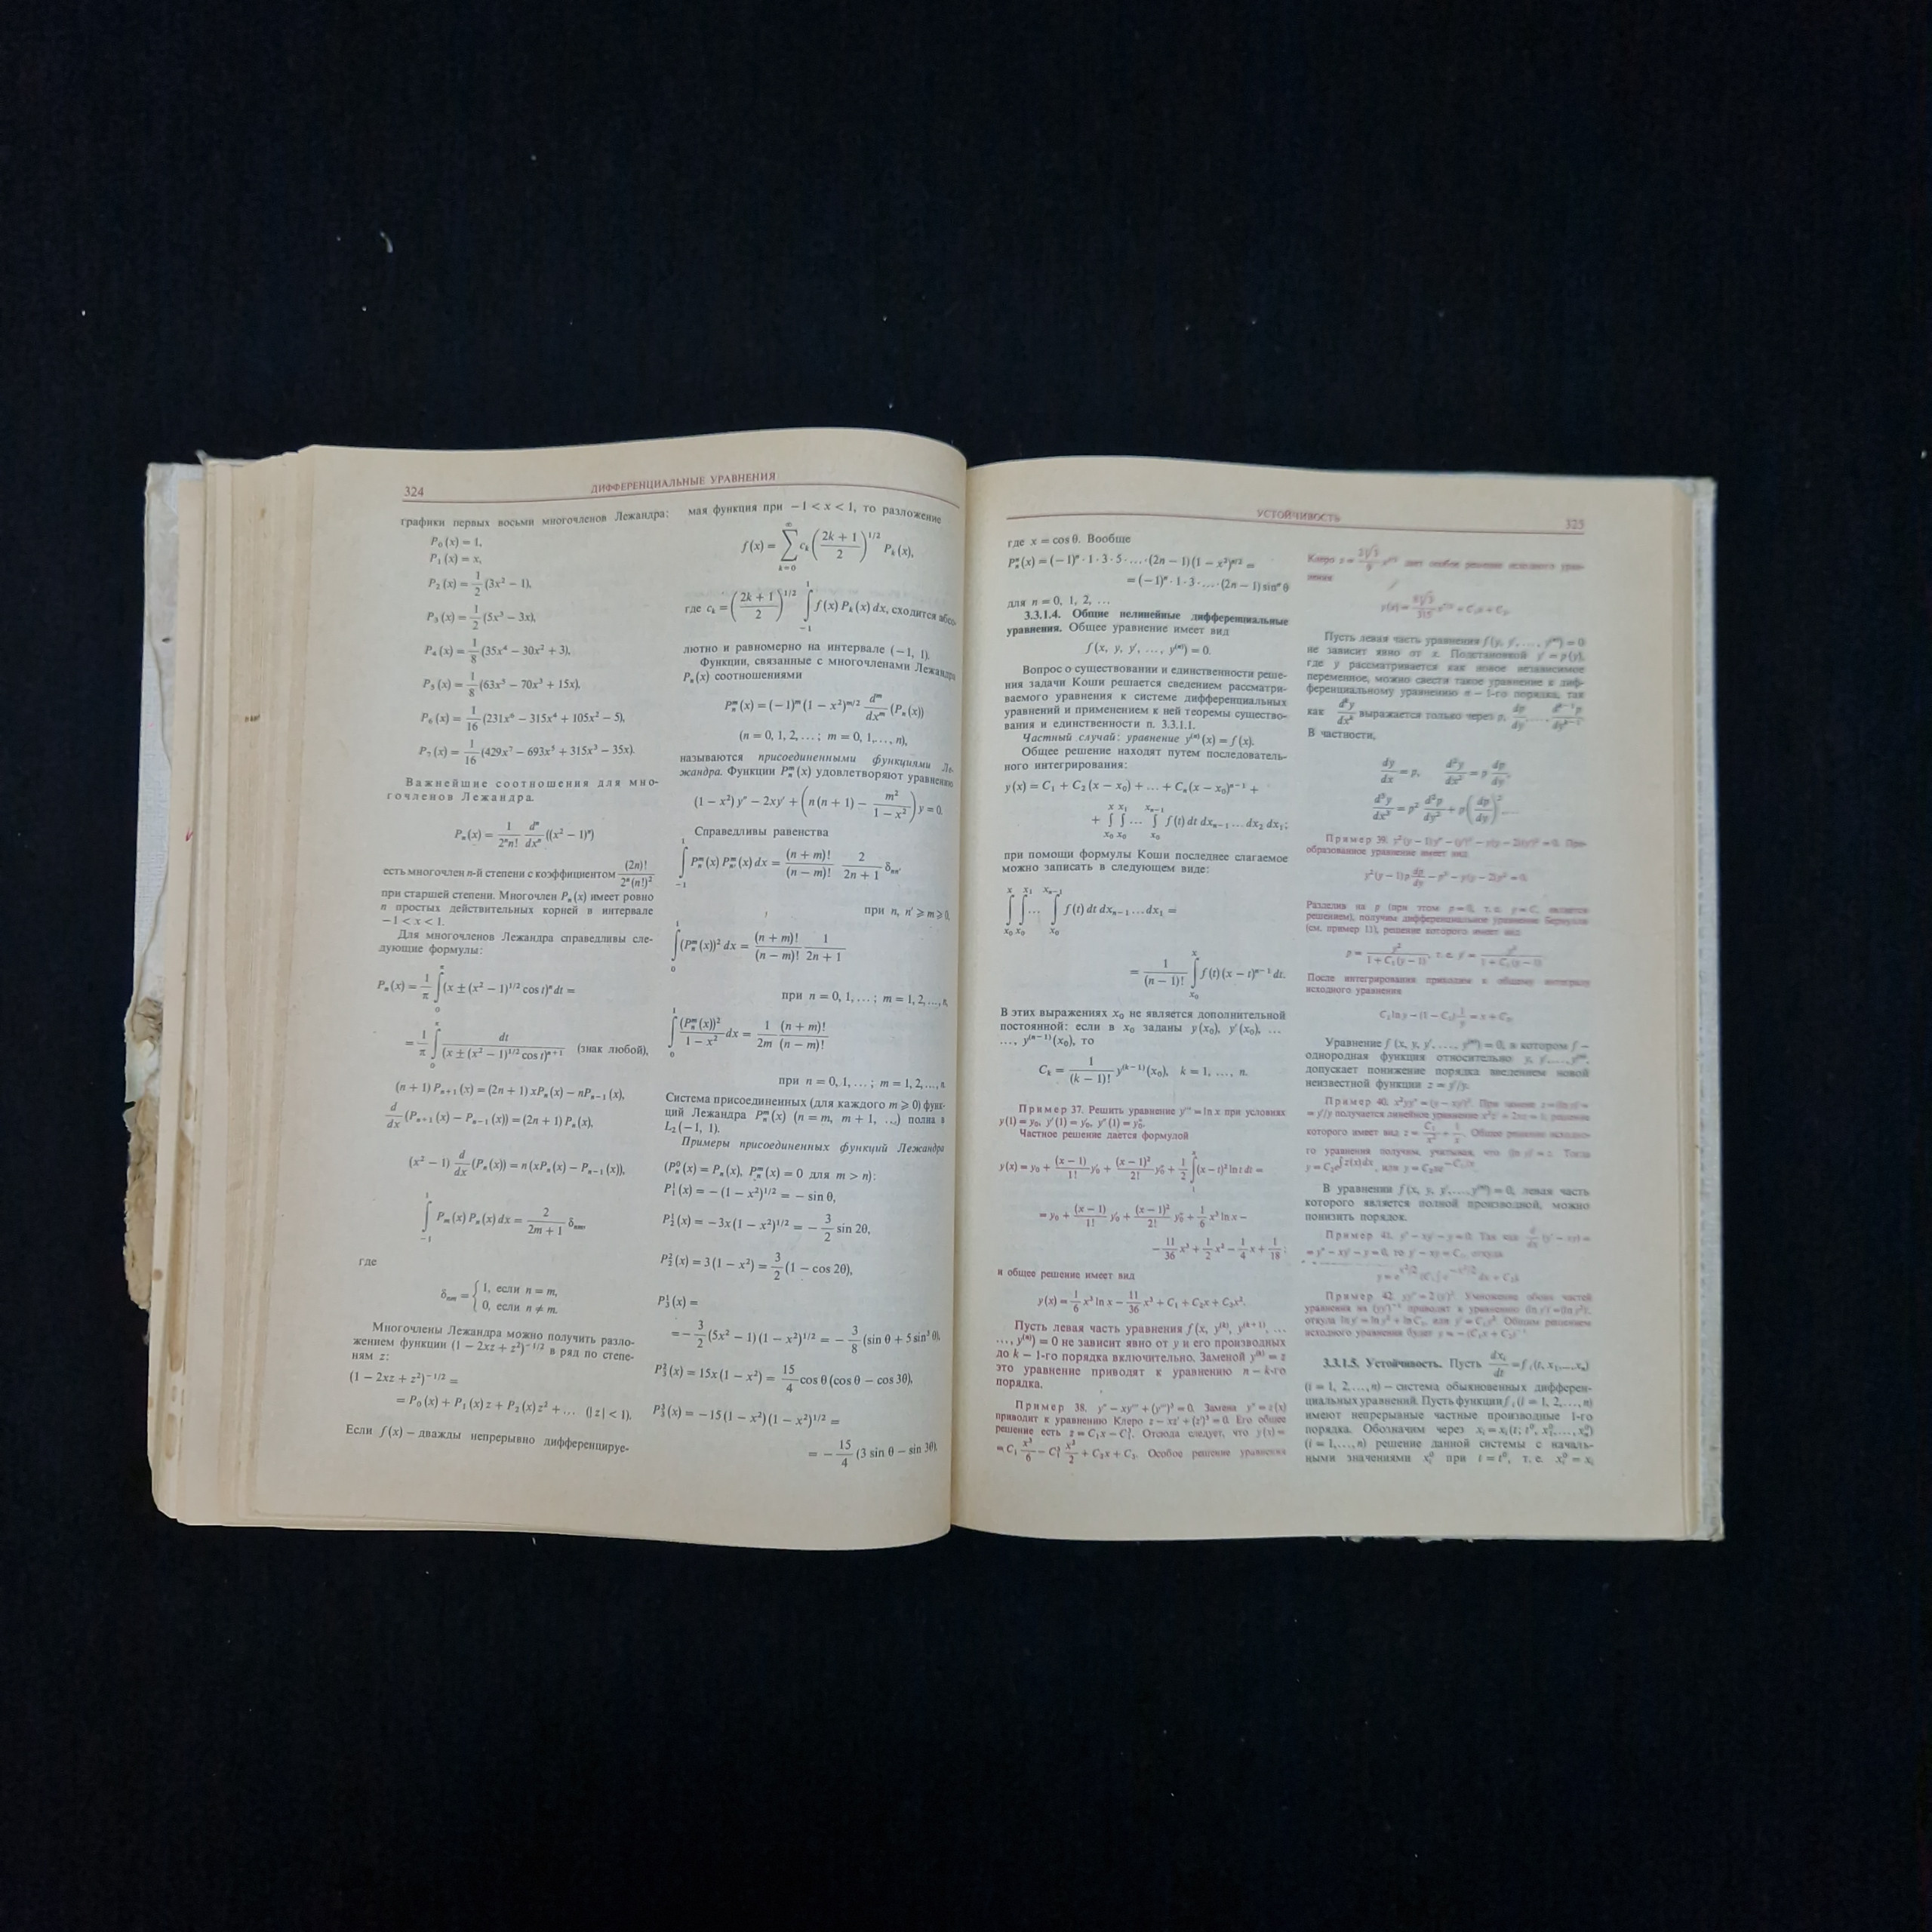 324
ДИФФЕРЕНЦИАЛЬНЫЕ УРАВНЕНИЯ
графики первых восьми многочленов Лежандра:
P₀(x) = 1,
P₁(x) = x,
P₂(x) = 1/2 (3x² − 1),
P₃(x) = 1/2 (5x³ − 3x),
P₄(x) = 1/8 (35x⁴ − 30x² + 3),
P₅(x) = 1/8 (63x⁵ − 70x³ + 15x),
P₆(x) = 1/16 (231x⁶ − 315x⁴ + 105x² − 5),
P₇(x) = 1/16 (429x⁷ − 693x⁵ + 315x³ − 35x).
Важнейшие соотношения для мно-
гочленов Лежандра.
Pₙ(x) = 1/(2ⁿn!) dⁿ/dxⁿ ((x² − 1)ⁿ)
есть многочлен n-й степени с коэффициентом (2n)!/(2ⁿ(n!)²)
при старшей степени. Многочлен Pₙ(x) имеет ровно
n простых действительных корней в интервале
−1 < x < 1.
Для многочленов Лежандра справедливы сле-
дующие формулы:
Pₙ(x) = 1/π ∫₀^π (x ± (x² − 1)^{1/2} cos t)ⁿ dt =
= 1/π ∫₀^π dt/(x ± (x² − 1)^{1/2} cos t)^{n+1} (знак любой),
(n + 1) Pₙ₊₁(x) = (2n + 1) xPₙ(x) − nPₙ₋₁(x),
d/dx (Pₙ₊₁(x) − Pₙ₋₁(x)) = (2n + 1) Pₙ(x),
(x² − 1) d/dx (Pₙ(x)) = n(xPₙ(x) − Pₙ₋₁(x)),
∫₋₁¹ Pₘ(x) Pₙ(x) dx = 2/(2m + 1) δₙₘ,
где
δₙₘ = { 1, если n = m,
0, если n ≠ m.
Многочлены Лежандра можно получить разло-
жением функции (1 − 2xz + z²)^{−1/2} в ряд по степе-
ням z:
(1 − 2xz + z²)^{−1/2} =
= P₀(x) + P₁(x) z + P₂(x) z² + ... (|z| < 1).
Если f(x) − дважды непрерывно дифференцируе-
мая функция при −1 < x < 1, то разложение
f(x) = ∑_{k=0}^∞ cₖ ((2k + 1)/2)^{1/2} Pₖ(x),
где cₖ = ((2k + 1)/2)^{1/2} ∫₋₁¹ f(x) Pₖ(x) dx, сходится абсо-
лютно и равномерно на интервале (−1, 1).
Функции, связанные с многочленами Лежандра
Pₙ(x) соотношениями
Pₙᵐ(x) = (−1)ᵐ (1 − x²)^{m/2} dᵐ/dxᵐ (Pₙ(x))
(n = 0, 1, 2, ...; m = 0, 1, ..., n),
называются присоединенными функциями Ле-
жандра. Функции Pₙᵐ(x) удовлетворяют уравнению
(1 − x²) y″ − 2xy′ + (n(n + 1) − m²/(1 − x²)) y = 0.
Справедливы равенства
∫₋₁¹ Pₙᵐ(x) Pₙ′ᵐ(x) dx = (n + m)!/(n − m)! 2/(2n + 1) δₙₙ′
при n, n′ ⩾ m ⩾ 0,
∫₀¹ (Pₙᵐ(x))² dx = (n + m)!/(n − m)! 1/(2n + 1)
при n = 0, 1, ...; m = 1, 2, ..., n,
∫₀¹ (Pₙᵐ(x))²/(1 − x²) dx = 1/2m (n + m)!/(n − m)!
при n = 0, 1, ...; m = 1, 2, ..., n.
Система присоединенных (для каждого m ⩾ 0) функ-
ций Лежандра Pₙᵐ(x) (n = m, m + 1, ...) полна в
L₂(−1, 1).
Примеры присоединенных функций Лежандра
(Pₙ⁰(x) = Pₙ(x), Pₙᵐ(x) = 0 для m > n):
P₁¹(x) = −(1 − x²)^{1/2} = − sin θ,
P₂¹(x) = −3x(1 − x²)^{1/2} = − 3/2 sin 2θ,
P₂²(x) = 3(1 − x²) = 3/2 (1 − cos 2θ),
P₃¹(x) =
= − 3/2 (5x² − 1)(1 − x²)^{1/2} = − 3/8 (sin θ + 5 sin³ θ),
P₃²(x) = 15x(1 − x²) = 15/4 cos θ (cos θ − cos 3θ),
P₃³(x) = −15(1 − x²)(1 − x²)^{1/2} =
= − 15/4 (3 sin θ − sin 3θ).
УСТОЙЧИВОСТЬ
325
где x = cos θ. Вообще
Pₙⁿ(x) = (−1)ⁿ · 1 · 3 · 5 · ... · (2n − 1)(1 − x²)^{n/2} =
= (−1)ⁿ · 1 · 3 · ... · (2n − 1) sinⁿ θ
для n = 0, 1, 2, ...
3.3.1.4. Общие нелинейные дифференциальные
уравнения. Общее уравнение имеет вид
f(x, y, y′, ..., y⁽ⁿ⁾) = 0.
Вопрос о существовании и единственности реше-
ния задачи Коши решается сведением рассматри-
ваемого уравнения к системе дифференциальных
уравнений и применением к ней теоремы существо-
вания и единственности п. 3.3.1.1.
Частный случай: уравнение y⁽ⁿ⁾(x) = f(x).
Общее решение находят путем последователь-
ного интегрирования:
y(x) = C₁ + C₂(x − x₀) + ... + Cₙ(x − x₀)ⁿ⁻¹ +
+ ∫_{x₀}^{x} ∫_{x₀}^{x₁} ... ∫_{x₀}^{xₙ₋₁} f(t) dt dxₙ₋₁ ... dx₂ dx₁;
при помощи формулы Коши последнее слагаемое
можно записать в следующем виде:
∫_{x₀}^{x} ∫_{x₀}^{x₁} ... ∫_{x₀}^{xₙ₋₁} f(t) dt dxₙ₋₁ ... dx₁ =
= 1/(n − 1)! ∫_{x₀}^{x} f(t)(x − t)ⁿ⁻¹ dt.
В этих выражениях x₀ не является дополнительной
постоянной: если в x₀ заданы y(x₀), y′(x₀), ...
..., y⁽ⁿ⁻¹⁾(x₀), то
Cₖ = 1/(k − 1)! y⁽ᵏ⁻¹⁾(x₀), k = 1, ..., n.
Пример 37. Решить уравнение y‴ = ln x при условиях
y(1) = y₀, y′(1) = y₀′, y″(1) = y₀″.
Частное решение дается формулой
y(x) = y₀ + (x − 1)/1! y₀′ + (x − 1)²/2! y₀″ + 1/2 ∫₁ˣ (x − t)² ln t dt =
= y₀ + (x − 1)/1! y₀′ + (x − 1)²/2! y₀″ + 1/6 x³ ln x −
− 11/36 x³ + 1/2 x² − 1/4 x + 1/18;
и общее решение имеет вид
y(x) = 1/6 x³ ln x − 11/36 x³ + C₁ + C₂x + C₃x².
Пусть левая часть уравнения f(x, y⁽ᵏ⁾, y⁽ᵏ⁺¹⁾, ...
..., y⁽ⁿ⁾) = 0 не зависит явно от y и его производных
до k − 1-го порядка включительно. Заменой y⁽ᵏ⁾ = z
это уравнение приводят к уравнению n − k-го
порядка.
Пример 38. y″ − xy‴ + (y‴)³ = 0. Замена y″ = z(x)
приводит к уравнению Клеро z − xz′ + (z′)³ = 0. Его общее
решение есть z = C₁x − C₁³. Отсюда следует, что y(x) =
= C₁ x³/6 − C₁³ x²/2 + C₂x + C₃. Особое решение уравнения
Клеро дает особое решение исходного урав-
нения
Пусть левая часть уравнения f(y, y′, ..., y⁽ⁿ⁾) = 0
не зависит явно от x. Подстановкой y′ = p(y),
где y рассматривается как новое независимое
переменное, можно свести такое уравнение к диф-
ференциальному уравнению n − 1-го порядка, так
как dᵏy/dxᵏ выражается только через p, dp/dy, ..., dᵏ⁻¹p/dyᵏ⁻¹.
В частности,
dy/dx = p, d²y/dx² = p dp/dy,
d³y/dx³ = p² d²p/dy² + p(dp/dy)², ...
Пример 39. Пре-
образованное уравнение имеет вид
Разделив на p (при этом p = 0, т. е. y = C, является
решением), получим дифференциальное уравнение Бернулли
(см. пример 11), решение которого имеет вид
p = y²/(1 + C₁(y − 1)), т. е. y′ = y²/(1 + C₁(y − 1)).
После интегрирования приходим к общему интегралу
исходного уравнения
C₁ ln y − (1 − C₁) 1/y = x + C₂.
Уравнение f(x, y, y′, ..., y⁽ⁿ⁾) = 0, в котором f −
однородная функция относительно y, y′, ..., y⁽ⁿ⁾,
допускает понижение порядка введением новой
неизвестной функции z = y′/y.
Пример 40. x²yy″ = (y − xy′)². При замене
= y′/y получается линейное уравнение
которого имеет вид z = C₁/x² + 1/x. Общее решение исходно-
го уравнения получим, учитывая, что Тогда
В уравнении f(x, y, y′, ..., y⁽ⁿ⁾) = 0, левая часть
которого является полной производной, можно
понизить порядок.
Пример 41. y″ − xy′ − y = 0. Так как d/dx (y′ − xy) =
= y″ − xy′ − y = 0, то y′ − xy = C₁, откуда
Пример 42. Умножение обеих частей
уравнения на приводит к уравнению
откуда Общим решением
исходного уравнения будет
3.3.1.5. Устойчивость. Пусть dxᵢ/dt = fᵢ(t, x₁, ..., xₙ)
(i = 1, 2, ..., n) − система обыкновенных дифферен-
циальных уравнений. Пусть функции fᵢ (i = 1, 2, ..., n)
имеют непрерывные частные производные 1-го
порядка. Обозначим через xᵢ = xᵢ(t; t⁰, x₁⁰, ..., xₙ⁰)
(i = 1, ..., n) решение данной системы с началь-
ными значениями xᵢ⁰ при t = t⁰, т. е. xᵢ⁰ = xᵢ